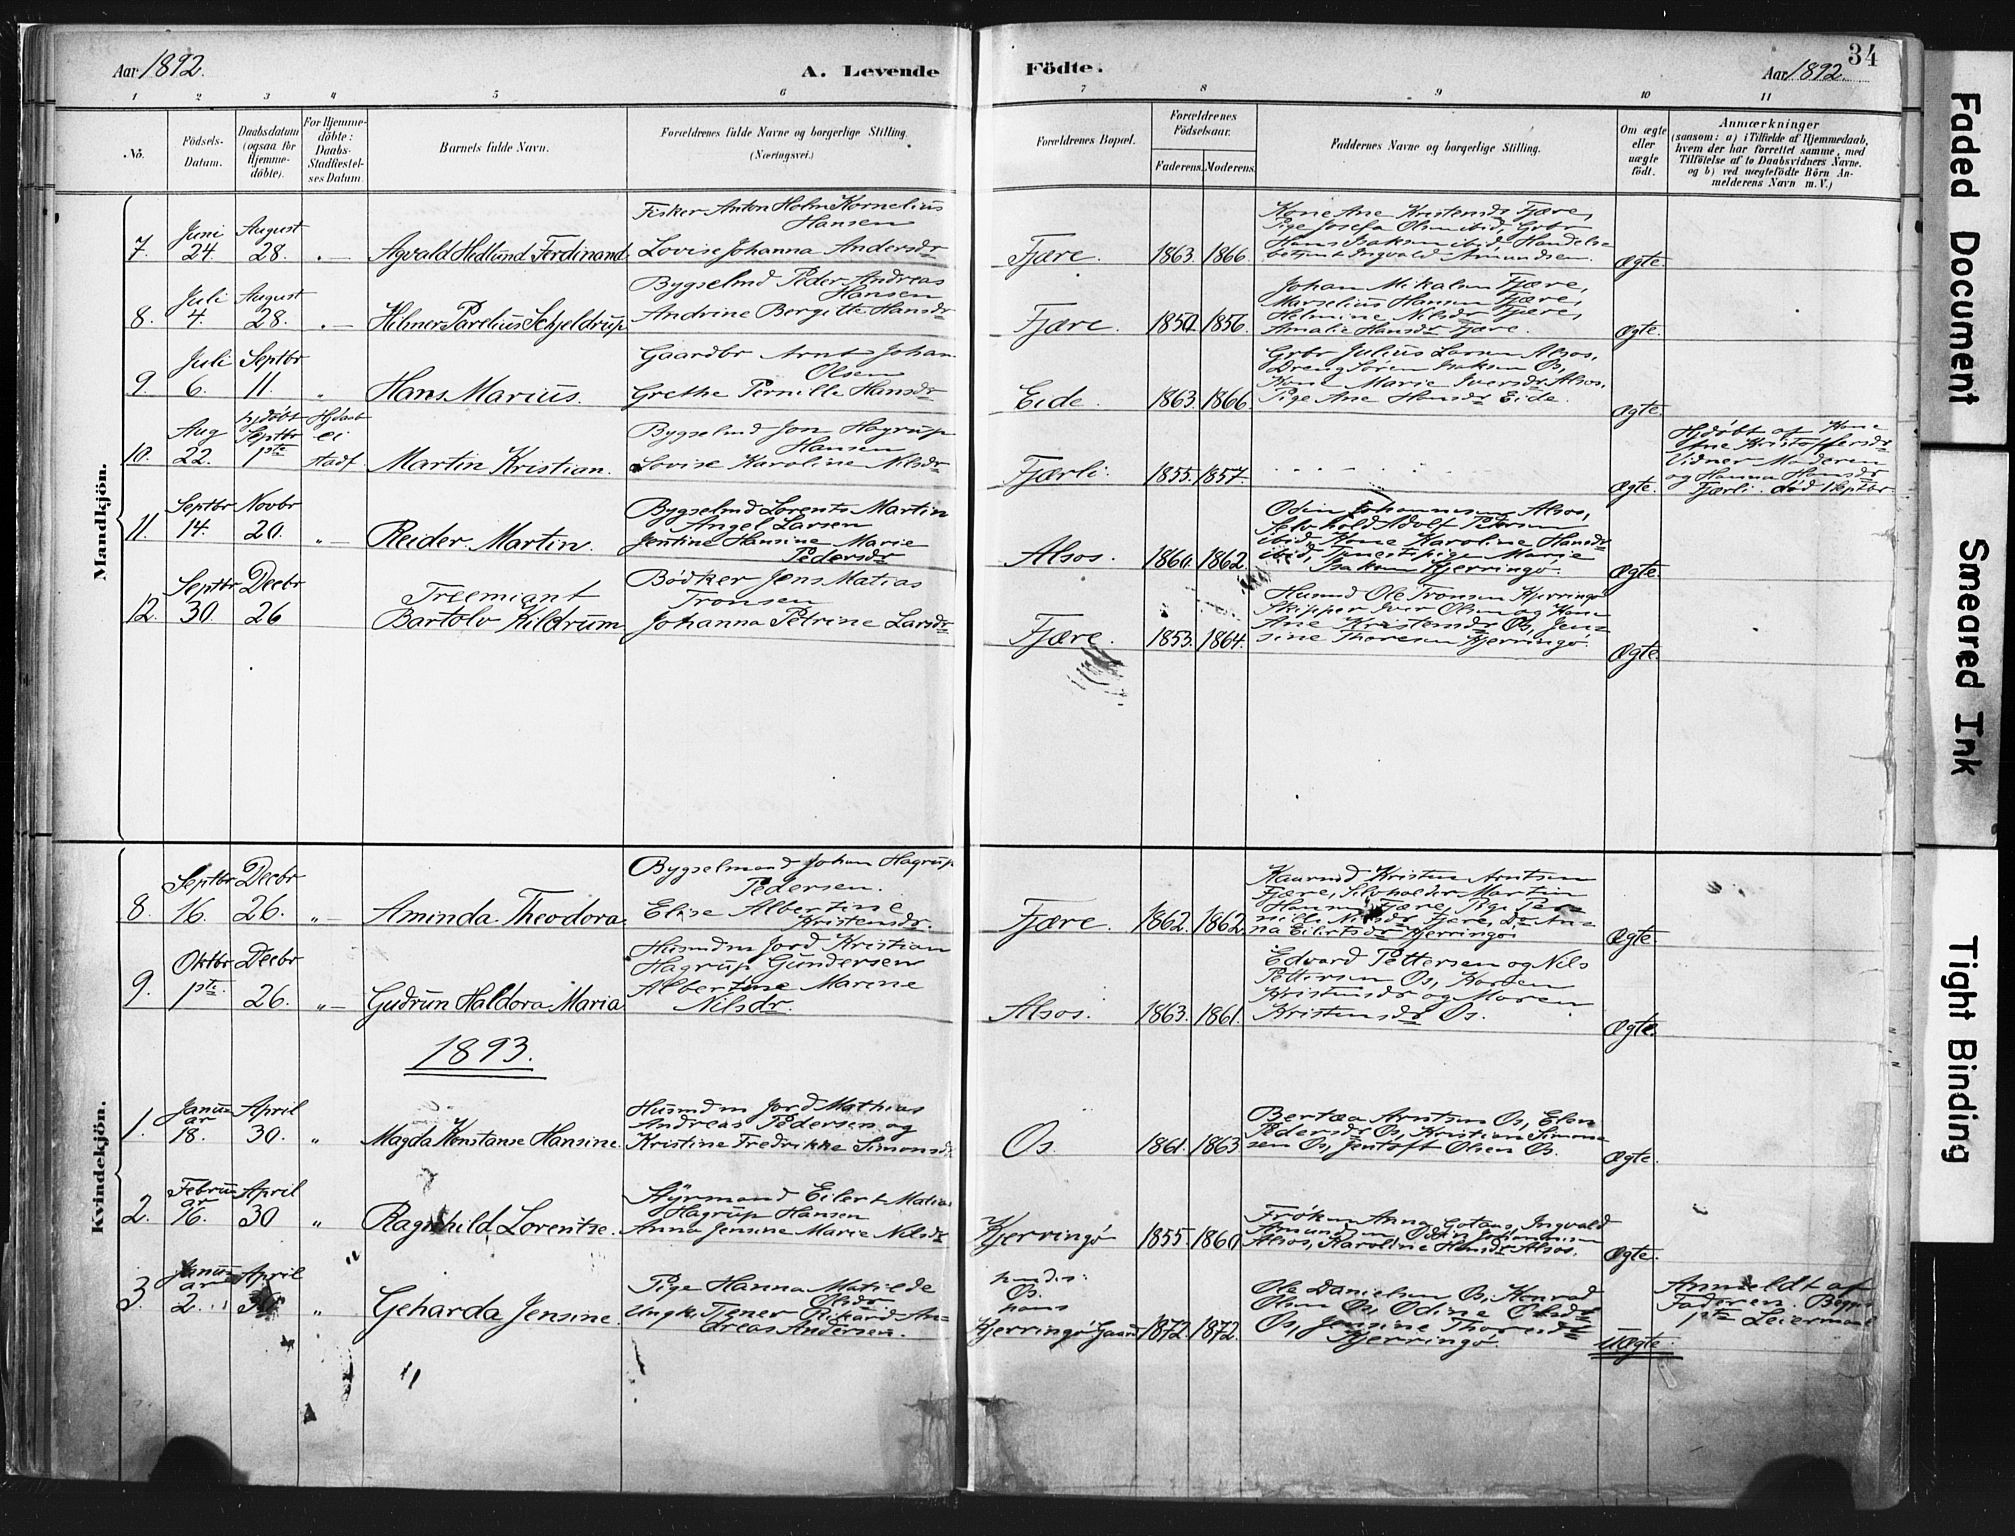 Aar 1892.
A. Levende
Födte.
Aar 1892.
34
1 2 3 4 5 6 7 8 9 10 11
No.
Födsels-
Datum.
Daabsdatum
(ogsaa for
Hjemme-
döbte).
For Hjemme-
döbte:
Daabs-
Stadfæstel-
ses Datum.
Barnets fulde Navn.
Forældrenes fulde Navne og borgerlige Stilling.
(Næringsvei.)
Forældrenes Bopæl.
Forældrenes
Födselsaar.
Faderens.
Moderens.
Faddernes Navne og borgerlige Stilling.
Om ægte
eller
uægte
födt.
Anmærkninger
(saasom: a) i Tilfælde af Hjemmedaab,
hvem der har forrettet samme, med
Tilföielse af to Daabsvidners Navne.
og b) ved uægtefödte Börn An-
melderens Navn m. V.)
Mandkjön.
7.
Juni
24.
August
28.
Agvald Hedlund Ferdinand
Fisker Anton Holm Kornelius
Hansen
Lovise Johanna Andersdr
Fjære.
1863. 1866.
Kone Ane Kristensdr Fjære,
Pige Josefa Olsen ibid, Grbr
Hans Isaksen ibid, Handels-
betjent Ingvald Amundsen.
Ægte.
8.
Juli
4.
August
28.
Hilmer Parelius Schjeldrup
Bygselmd Peder Andreas
Hansen
Andrine Bergitte Hansdr
Fjære.
1850. 1856.
Johan Mikalsen Fjære,
Marselius Hansen Fjære,
Helmine Nilsdr Fjære,
Amalie Hansdr Fjære.
Ægte.
9.
Juli
6.
Septbr
11.
Hans Marius.
Gaardbr Arnt Johan
Olsen
Grethe Pernille Hansdr
Eide.
1863. 1866.
Grbr Julius Larsen Alsos,
Dreng Sören Isaksen Os,
Kone Marie Iversdr Alsos,
Pige Ane Hansdr Eide.
Ægte
10.
Aug
22.
hjdöbt
Septbr
1ste
Hjdaab
ei
stadf
Martin Kristian.
Bygselmd Jon Hagrup
Hansen
Lovise Karoline Nilsdr
Fjærli.
1855. 1857.
Ægte.
Hjdöbt af Kone
Ane Kristoffersdr
Vidner Moderen
og Hanna Hansdr
Fjærli. död 1 Septbr
11.
Septbr
14.
Novbr
20.
Reider Martin.
Bygselmd Lorents Martin
Angel Larsen
Jentine Hansine Marie
Pedersdr
Alsos.
1860. 1862.
Odin Johannesen Alsos,
Selvhold Adolf Petersen
ibid, Kone Karoline Hansdr
ibid, Tjenestepige Marie
Isaksen Kjerringö.
Ægte.
12.
Septbr
30.
Decbr
26
Treemiant
Bartolv Kildrum
Bödker Jens Matias
Tronsen
Johanna Petrine Larsdr
Fjære.
1853. 1864.
Husmd Ole Tronsen Kjerringö
Skipper Iver Olsen og Kone
Ane Kristensdr Os, Jen-
sine Thoresen Kjerringö.
Ægte.
Kvindekjön.
8.
Septbr
16.
Decbr
26.
Aminda Theodora.
Bygselmand Johan Hagrup
Pedersen.
Elise Albertine
Kristensdr.
Fjære.
1862. 1862.
Kaarmd Kristen Arntsen
Fjære, Selvholder Martin
Hansen Fjære, Pige Per-
nille Nilsdr Fjære, Do An-
na Eilertsdr Kjerringö.
Ægte.
9.
Oktbr
1ste.
Decbr
26.
Gudrun Haldora Maria
Husmd m Jord Kristian
Hagrup Gundersen
Albertine Marine
Nilsdr.
Alsos.
1863. 1861.
Edvard Pettersen og Nils
Pettersen Os, Karen
Kristensdr og Maren
Kristensdr Os.
Ægte.
1893.
1.
Janu-
ar
18.
April
30.
Magda Konstanse Hansine.
Husmd m Jord Mathias
Andreas Pedersen og
Kristine Fredrikke Simonsdr
Os.
1861. 1863
Bertea Arntsen Os, Elen
Pedersdr Os, Kristian Simon-
sen Os, Jentoft Olsen Os.
Ægte.
2.
Febru-
ar
16.
April
30
Ragnhild Lorentse.
Styrmand Eilert Matias
Hagrup Hansen
Anna Jensine Marie Nilsdr
Kjerringö
1855. 1860
Fröken Anna Gotaas, Ingvald
Amundsen Odin Johannesen
Alsos, Karoline Hansdr Alsos.
Ægte.
3.
Janu-
ar
2.
April
30
Geharda Jensine.
Pige Hanna Matilde
Olsdr
Ungk. Tjener Rikard An-
dreas Andersen.
hendes:
Os.
hans
Kjerringö Gaard
1872. 1872.
Ole Danielsen Os, Konrad
Olsen Os, Odine Olsdr
Os, Jensine Thoresdr
Kjerringö.
Uægte
Anmeldt af
Faderen. Begges
1ste Leiermaal
Faded Document
Smeared Ink
Tight Binding